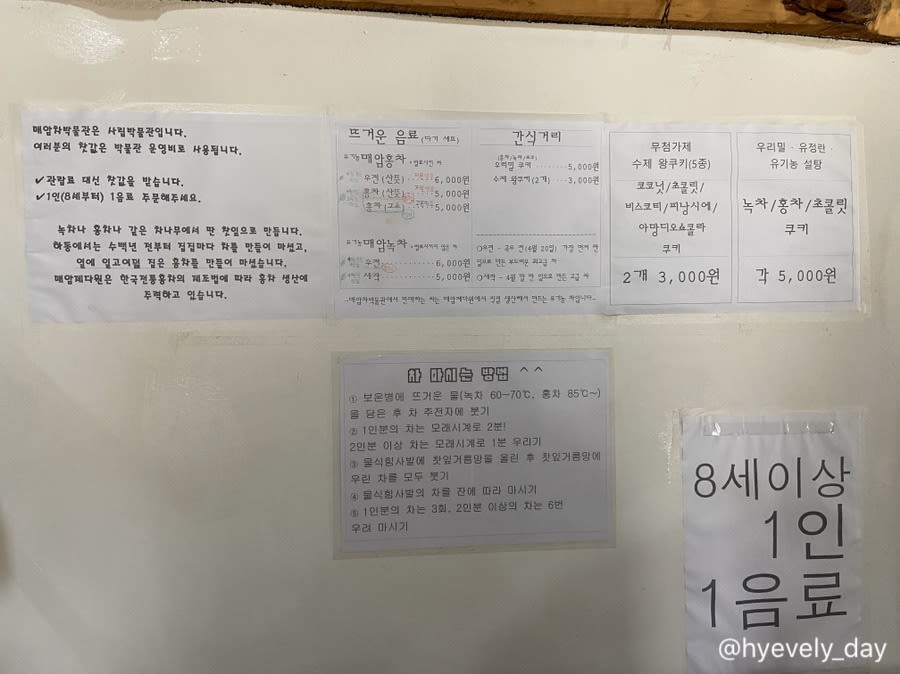 매암차박물관은 사립박물관입니다.
여러분의 찻값은 박물관 운영비로 사용됩니다.
✓관람료 대신 찻값을 받습니다.
✓1인(8세부터) 1음료 주문해주세요.
녹차나 홍차나 같은 차나무에서 딴 찻잎으로 만듭니다.
하동에서는 수백년 전부터 집집마다 차를 만들어 마셨고,
열에 일고여덟 집은 홍차를 만들어 마셨습니다.
매암제다원은 한국전통홍차의 제조법에 따라 홍차 생산에
주력하고 있습니다.
뜨거운 음료(다기 세트)
유기농 매암홍차
우전(산뜻) 6,000원
홍차(산뜻) 5,000원
홍차(고소) 5,000원
유기농 매암녹차
우전 6,000원
세작 5,000원
간식거리
(홍차/녹차/초코)
우리밀 쿠키 5,000원
수제 왕쿠키(2개) 3,000원
○우전 - 곡우 전(4월 20일) 가장 먼저 딴
잎으로 만든 부드러운 최고급 차
○세작 - 4월 말 딴 잎으로 만든 고급 차
-매암차박물관에서 판매하는 차는 매암제다원에서 직접 생산해서 만드는 유기농 차입니다-
무첨가제
수제 왕쿠키(5종)
코코넛/초콜릿/
비스코티/피낭시에/
아망디오쇼콜라
쿠키
2개 3,000원
우리밀 · 유정란 ·
유기농 설탕
녹차/홍차/초콜릿
쿠키
각 5,000원
차 마시는 방법 ^^
① 보온병에 뜨거운 물(녹차 60~70℃, 홍차 85℃~)
을 담은 후 차 주전자에 붓기
② 1인분의 차는 모래시계로 2분!
2인분 이상 차는 모래시계로 1분 우리기
③ 물식힘사발에 찻잎거름망을 올린 후 찻잎거름망에
우린 차를 모두 붓기
④ 물식힘사발의 차를 잔에 따라 마시기
⑤ 1인분의 차는 3회, 2인분 이상의 차는 6번
우려 마시기
8세이상
1인
1음료
@hyevely_day